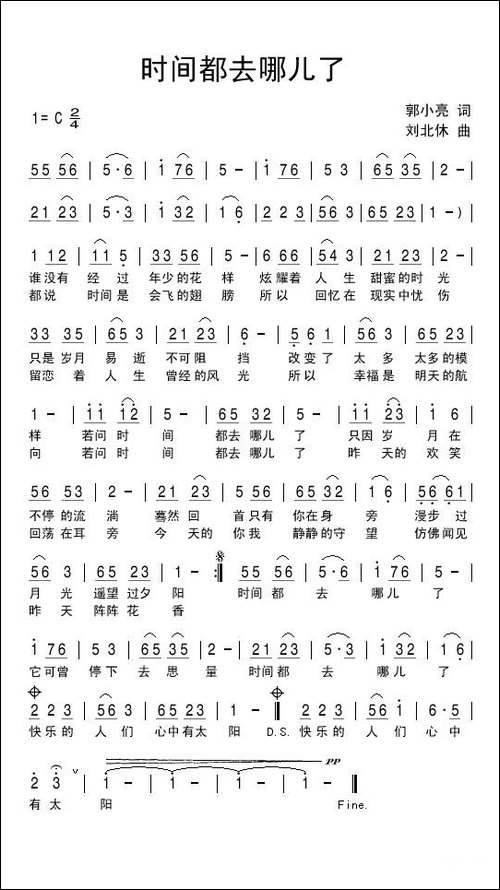 时间都去哪儿了
1=C 2/4
郭小亮 词
刘北休 曲
55 56 | 5·6 | i 76 | 5 - | i 76 | 5 3 | 65 35 | 2 - |
21 23 | 5·3 | i 32 | 1 6 | 2 23 | 56 3 | 65 23 | 1 - )
1 12 | 11 5 | 33 56 | 5 - | 6 66 | 54 3 | 21 23 | 5 -
谁没有 经过 年少的花 样 炫耀着 人生 甜蜜的时 光
都说 时间是 会飞的翅 膀 所以 回忆在 现实中忧 伤
33 35 | 65 3 | 21 23 | 6 - | 5 61 | 65 3 | 21 23
只是岁月 易逝 不可阻 挡 改变了 太多 太多的模
留恋着 人生 曾经的风 光 所以 幸福是 明天的航
1 - | ii i2 | 5 - | 65 32 | 5 - | ii 23 | i 6
样 若问时 间 都去哪儿 了 只因岁 月在
向 若问时 间 都去哪儿 了 昨天的 欢笑
56 53 | 2 - | 21 23 | 5 - | 65 32 | 1 6 | 56 61
不停的流 淌 蓦然回 首只有 你在身 旁 漫步过
回荡在耳 旁 今天的 你我 静静的守 望 仿佛闻见
56 3 | 65 23 | 1 - :| 55 56 | 5·6 | i 76 | 5 -
月光 遥望过夕 阳 时间都 去 哪儿 了
昨天 阵阵花 香
i 76 | 5 3 | 65 35 | 2 - | 21 23 | 5·3 | i 32 | 1 6
它可曾 停下 去思 量 时间都 去 哪儿 了
2 23 | 56 3 | 65 23 | 1 - | 2 23 | 56 i | 6·5
快乐的 人们 心中有太 阳 D.S. 快乐的 人们 心中
2 3 v | i - | i - | i - | i - pp
有太 阳 Fine.